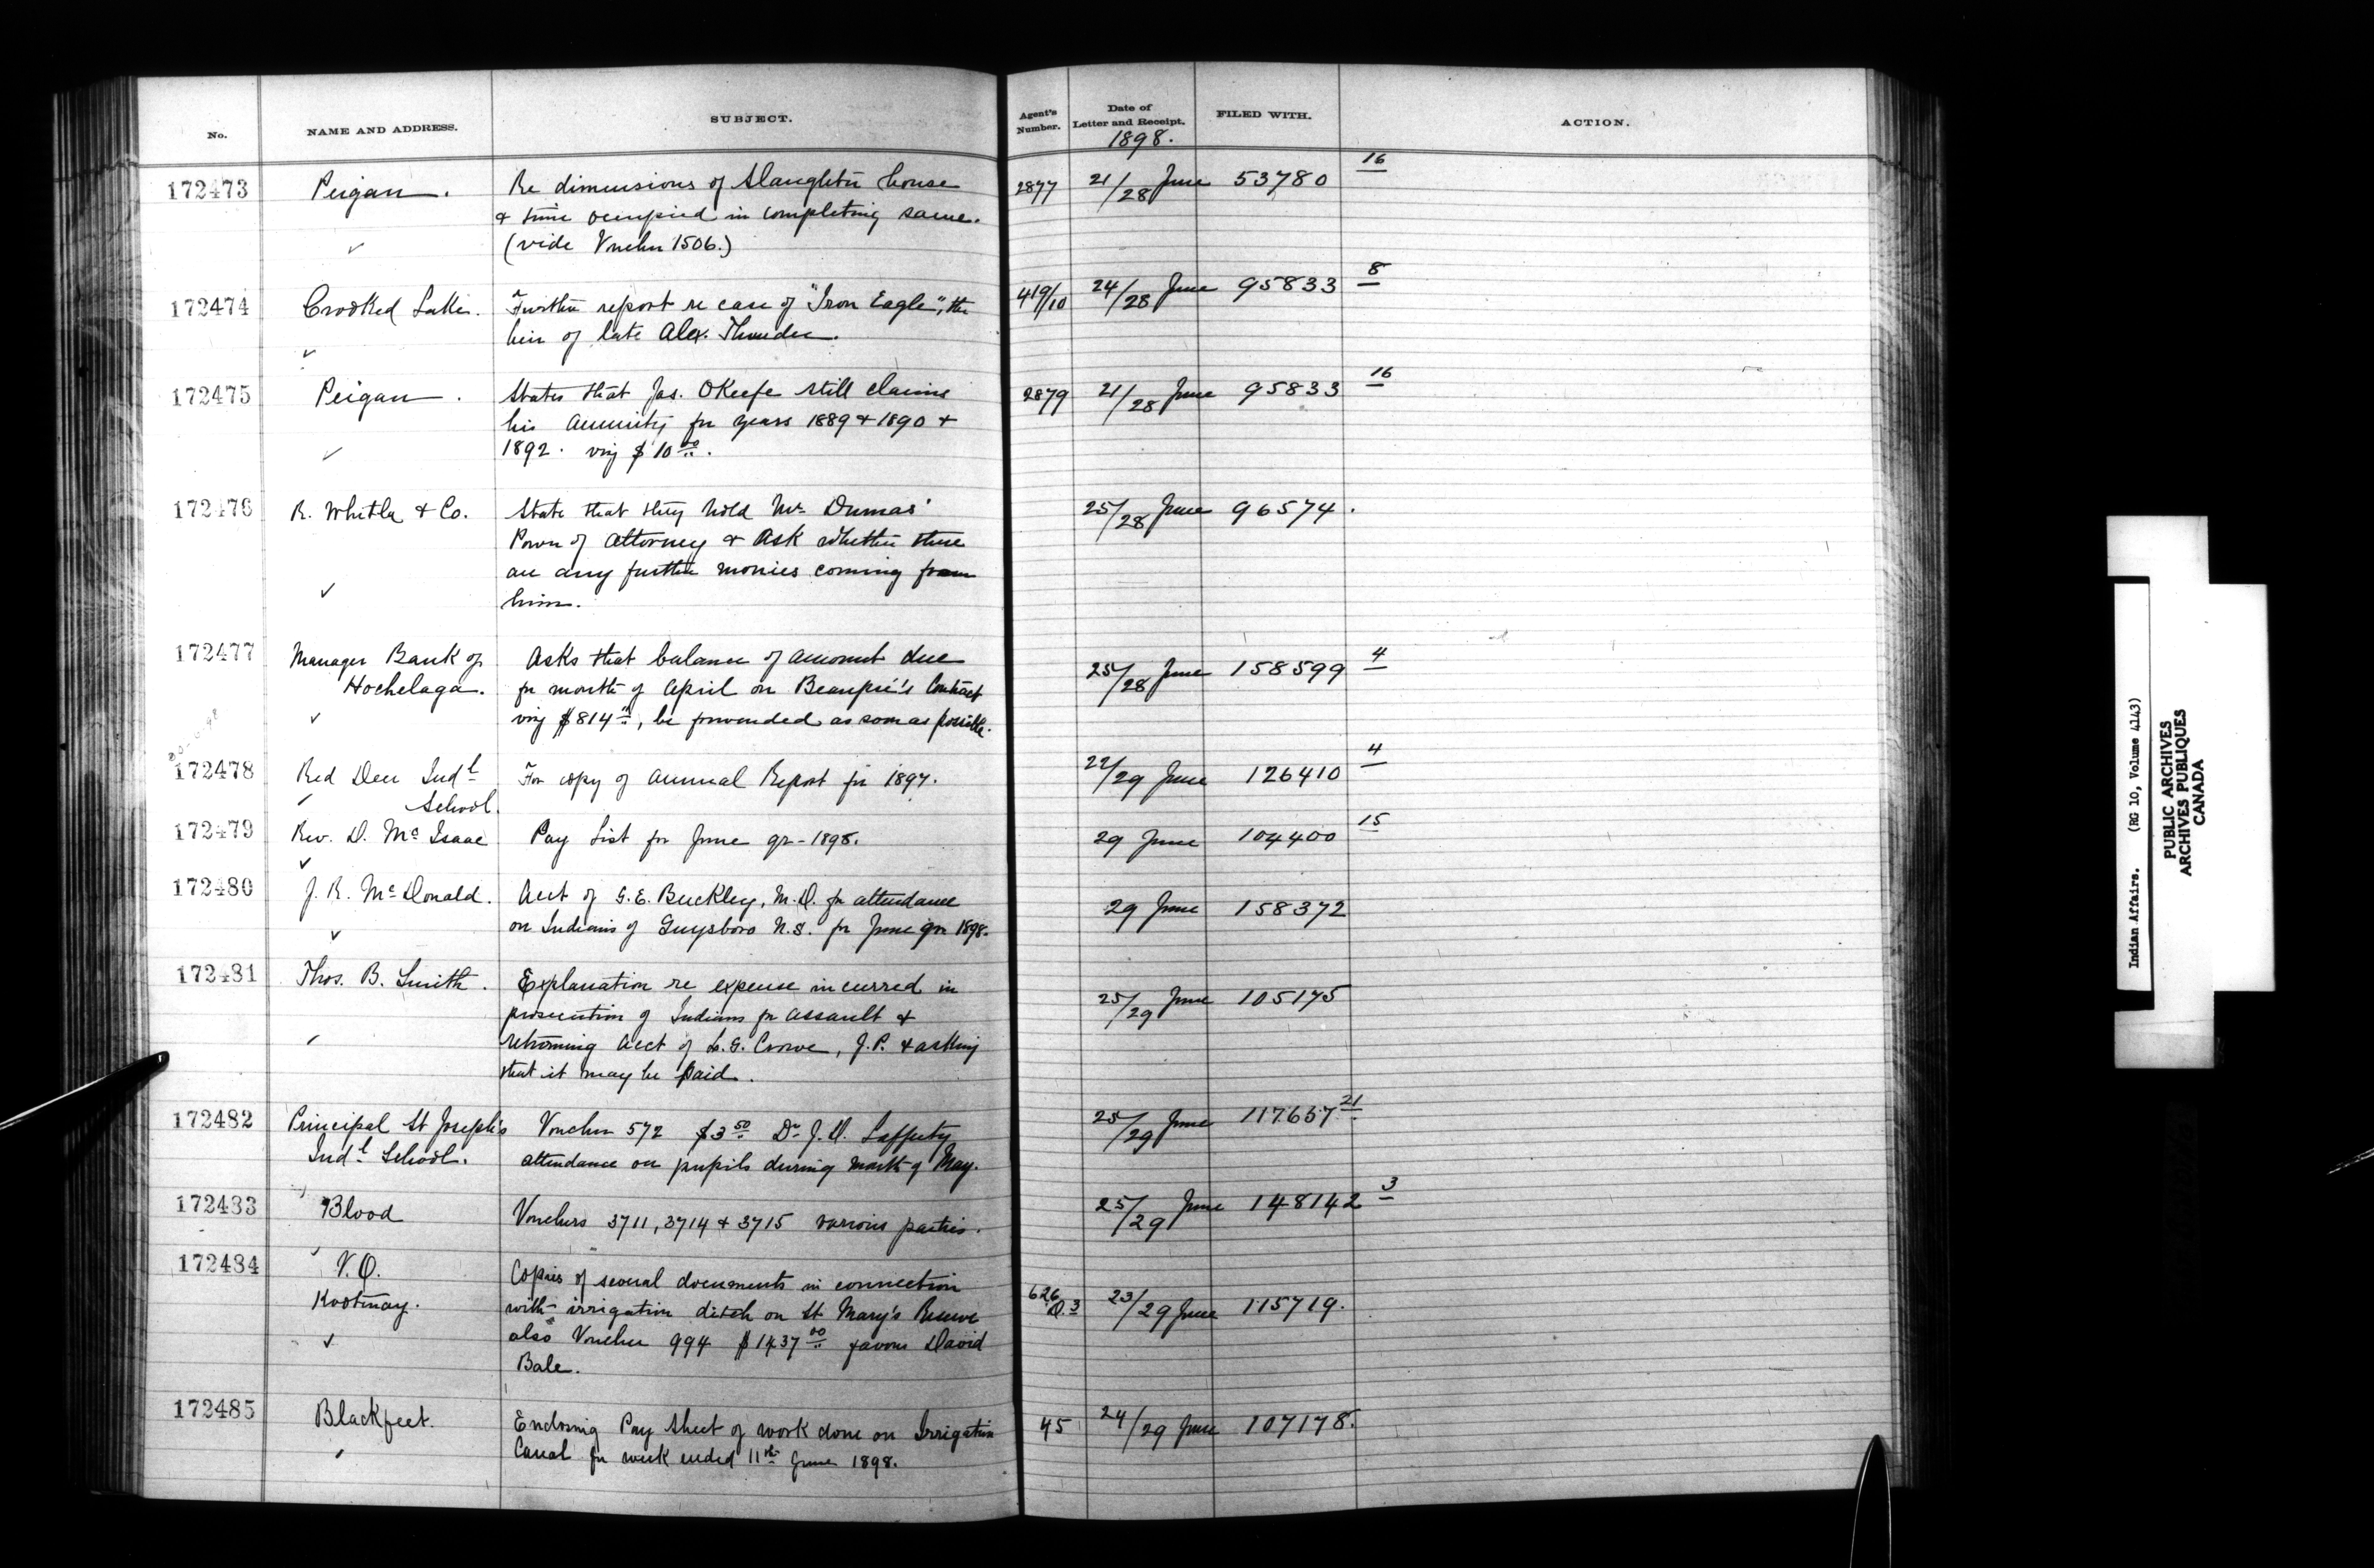 No. NAME AND ADDRESS. SUBJECT. Agent's Number. Date of Letter and Receipt. FILED WITH. ACTION.
1898.
172473 Peigan. Re dimensions of Slaughter house 2877 21/28 June 53780 16
& time occupied in completing same.
(vide Voucher 1506.)
172474 Crooked Lake. Further report re case of "Iron Eagle", the 419/10 24/28 June 95833 8
heir of late Alex. Thunder.
172475 Peigan. States that Jas. OKeefe still claims 2879 21/28 June 95833 16
his annuity for years 1889 & 1890 &
1892. viz $10 00.
172476 R. Whitla & Co. State that they hold Mr. Dumas' 25/28 June 96574.
Power of attorney & ask whether there
are any further monies coming from
him.
172477 Manager Bank of Asks that balance of amount due 25/28 June 158599 4
Hochelaga. for month of April on Beaupré's Contract
viz $814, be forwarded as soon as possible.
172478 Red Deer Indl For copy of Annual Report for 1897. 22/29 June 126410 4
School.
172479 Rev. D. McIsaac Pay List for June qr - 1898. 29 June 104400 15
172480 J. R. McDonald. Acct of G. E. Buckley, M.D. for attendance 29 June 158372
on Indians of Guysboro N.S. for June qr 1898.
172481 Thos. B. Smith. Explanation re expense incurred in 25/29 June 105175
prosecution of Indians for assault &
returning acct of L. G. Crowe, J.P. & asking
that it may be paid.
172482 Principal St Joseph's Voucher 572 $3 50 Dr. J. D. Lafferty 25/29 June 117657 21
Indl School. attendance on pupils during month of May.
172483 Blood Vouchers 3711, 3714 & 3715 various parties. 25/29 June 148142 3
172484 V.O. Copies of several documents in connection
Kootenay. with irrigation ditch on St Mary's Reserve 626 D.3 23/29 June 115719.
also Voucher 994 $1437 00 favour David
Bale.
172485 Blackfeet. Enclosing Pay Sheet of work done on Irrigation 45 24/29 June 107178.
Canal for week ended 11th June 1898.
Indian Affairs. (RG 10, Volume 4143)
PUBLIC ARCHIVES
ARCHIVES PUBLIQUES
CANADA